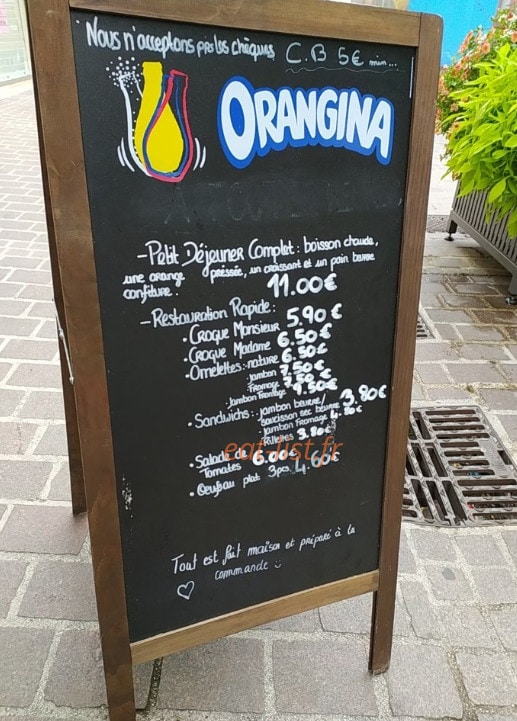 Nous n'acceptons pas les chèques,
C.B 5€ min...
ORANGINA
-Petit Déjeuner Complet: boisson chaude,
une orange pressée, un croissant et un pain beurre
confiture. 11.00€
-Restauration Rapide:
• Croque Monsieur 5,90€
• Croque Madame 6.50€
• Omelettes: nature 6.50€
jambon 7.50€
fromage 7.50€
jambon fromage 9.50€
• Sandwichs: jambon beurre/
saucisson sec beurre 3.80€
jambon fromage 4.20€
Rillettes 3.80€
• Salade de
Tomates 6.00€
• Oeuf au plat 3pcs 4.60€
eat-list.fr
Tout est fait maison et préparé à la
commande